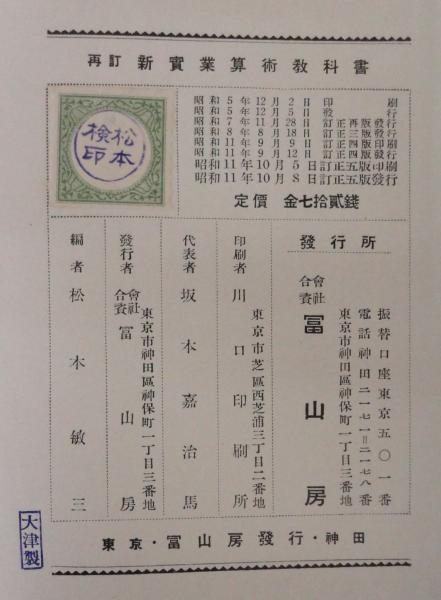 再訂 新實業算術教科書
松本
檢印
昭和5年12月2日 印刷
昭和5年12月5日 發行
昭和7年11月28日 訂正再版發行
昭和8年8月18日 訂正三版發行
昭和11年9月9日 訂正四版印刷
昭和11年9月12日 訂正四版發行
昭和11年10月5日 訂正五版印刷
昭和11年10月8日 訂正五版發行
定價 金七拾貳錢
發行所
合資會社 冨山房
振替口座東京五〇一番
電話神田二一七一=二一七八番
東京市神田區神保町一丁目三番地
印刷者 川口印刷所
東京市芝區西芝浦三丁目二番地
代表者 坂本嘉治馬
發行者 合資會社 冨山房
東京市神田區神保町一丁目三番地
編者 松本敏三
大津製
東京・冨山房發行・神田